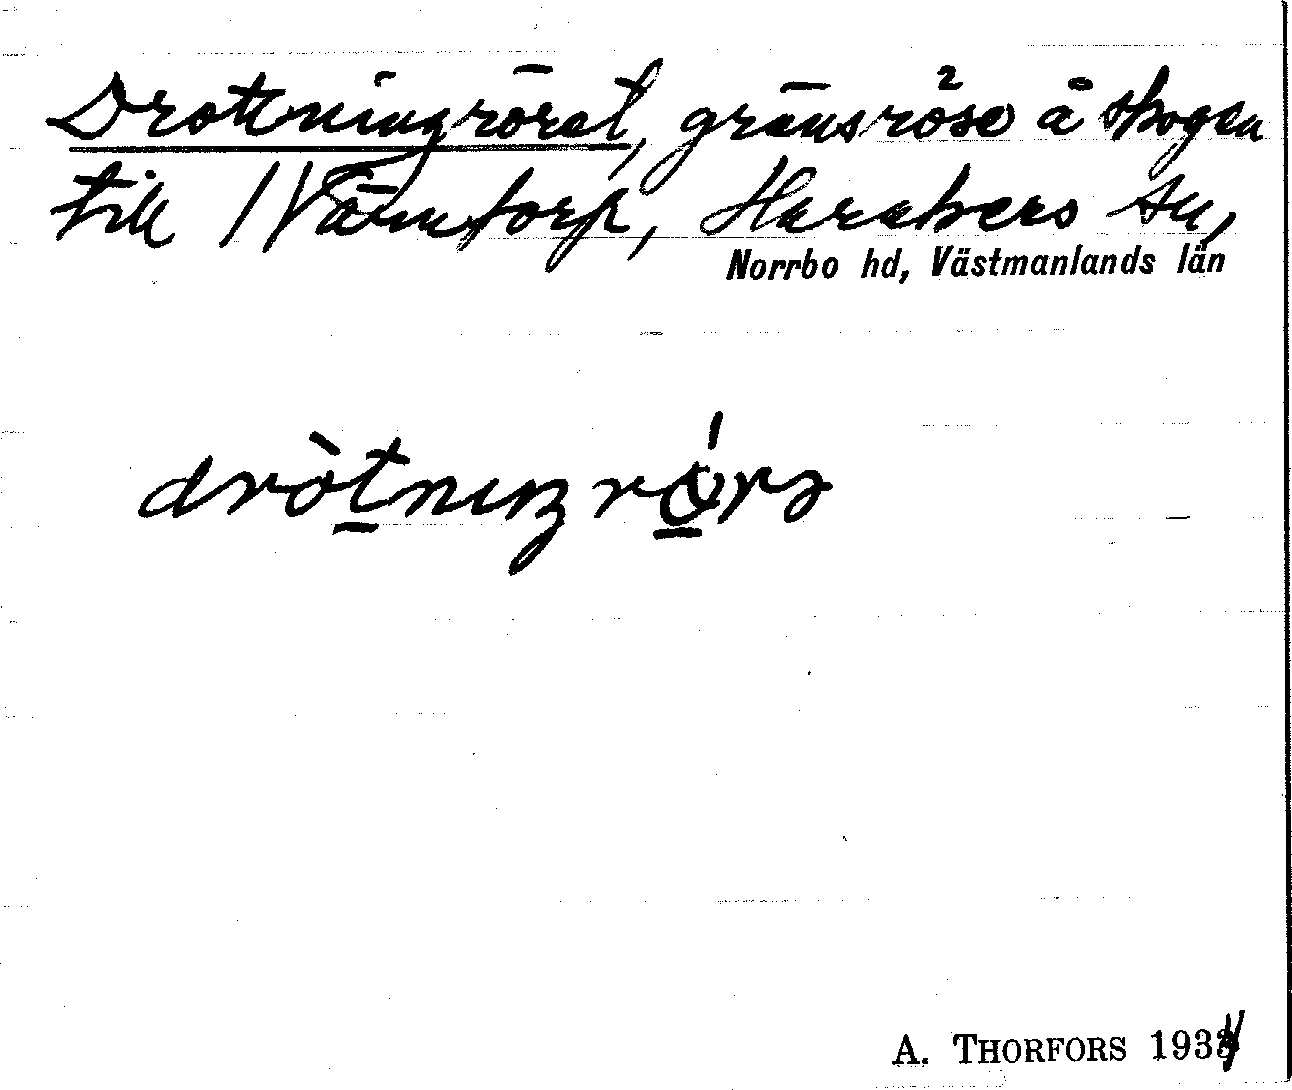 Drottningröret, gränsröse å skogen
till Värmtorp, Haraker sn,
Norrbo hd, Västmanlands län
dròtnıŋrö́rə
A. THORFORS 1934